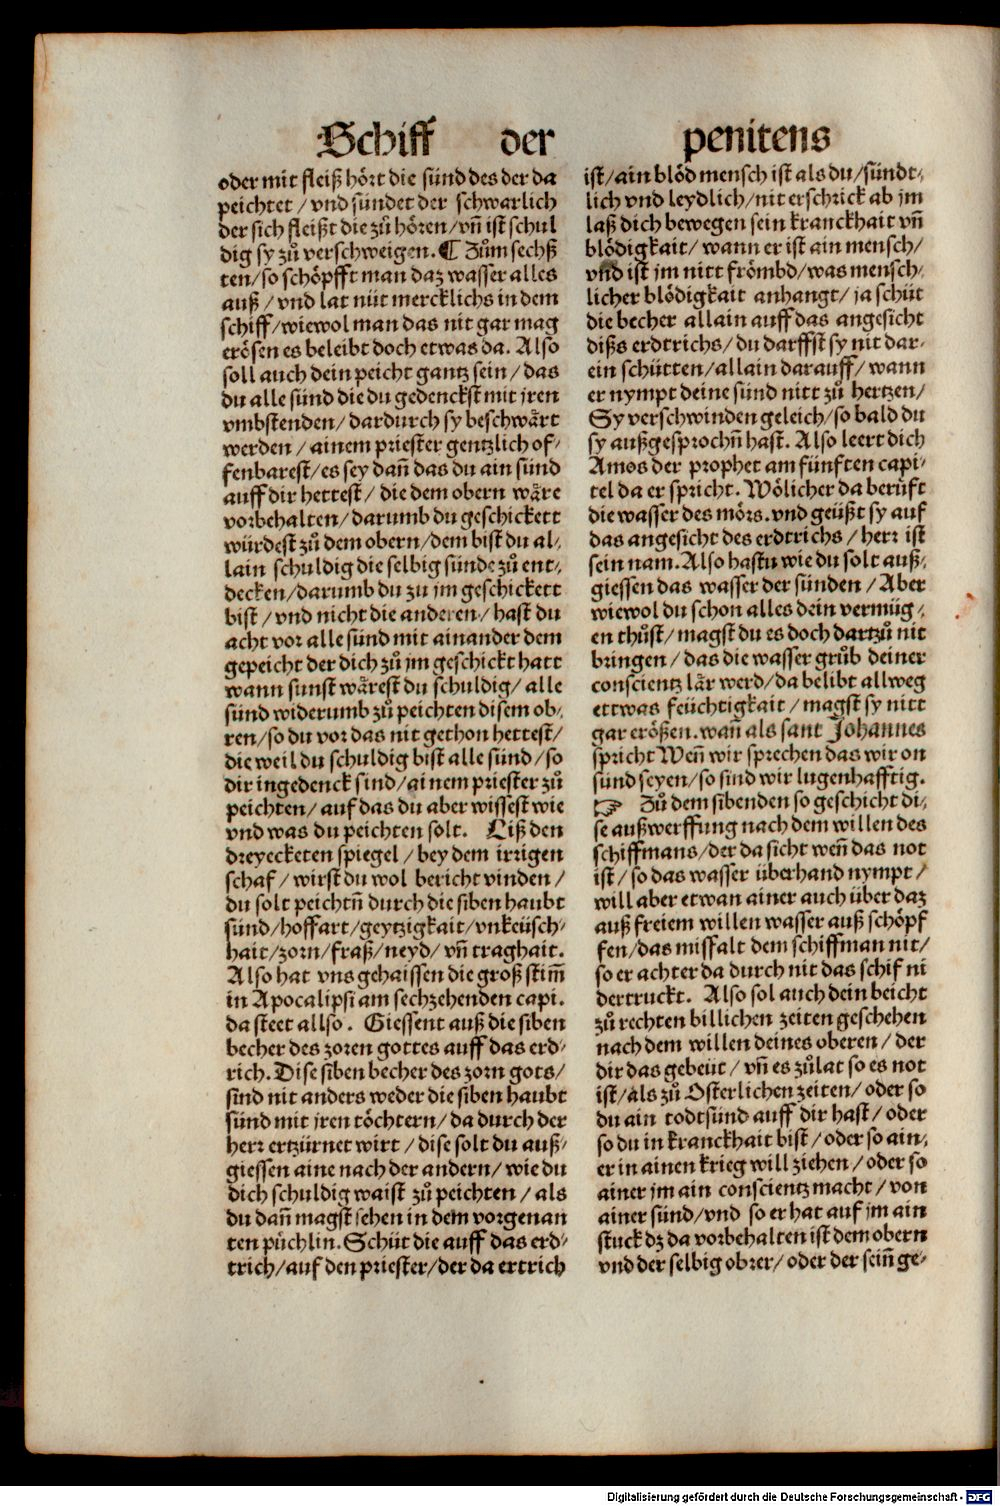 Schiff der penitens
oder mit fleiß hört die sünd des der da
peichtet / vnd sündet der schwarlich
der sich fleißt die zů hören / vñ ist schul
dig sy zů verschweigen. ¶ Zům sechß
ten / so schöpfft man daz wasser alles
auß / vnd lat nüt mercklichs in dem
schiff / wiewol man das nit gar mag
erösen es beleibt doch etwas da. Also
soll auch dein peicht gantz sein / das
du alle sünd die du gedenckst mit jren
vmbstenden / dardurch sy beschwårt
werden / ainem priester gentzlich of⸗
fenbarest / es sey dañ das du ain sünd
auff dir hettest / die dem obern wåre
vorbehalten / darumb du geschickett
würdest zů dem obern / dem bist du al⸗
lain schuldig die selbig sünde zů ent⸗
decken / darumb du zu jm geschickett
bist / vnd nicht die anderen / hast du
acht vor alle sünd mit ainander dem
gepeicht der dich zů jm geschickt hatt
wann sunst wårest du schuldig / alle
sünd widerumb zů peichten disem ob⸗
ren / so du vor das nit gethon hettest /
die weil du schuldig bist alle sünd / so
dir ingedenck sind / ainem priester zů
peichten / auf das du aber wissest wie
vnd was du peichten solt. Liß den
dreyecketen spiegel / bey dem irrigen
schaf / wirst du wol bericht vinden /
du solt peichtñ durch die siben haubt
sünd / hoffart / geytzigkait / vnkeüsch⸗
hait / zorn / fraß / neyd / vñ traghait.
Also hat vns gehaissen die groß stim̃
in Apocalipsi am sechzehenden capi.
da steet allso. Giessent auß die siben
becher des zoren gottes auff das erd⸗
rich. Dise siben becher des zorn gots /
sind nit anders weder die siben haubt
sünd mit jren töchtern / da durch der
herr ertzürnet wirt / dise solt du auß⸗
giessen aine nach der andern / wie du
dich schuldig waist zů peichten / als
du dañ magst sehen in dem vorgenan
ten püchlin. Schüt die auff das erd⸗
trich / auf den priester / der da ertrich
ist / ain blöd mensch ist als du / sündt⸗
lich vnd leydlich / nit erschrick ab jm
laß dich bewegen sein kranckhait vñ
blödigkait / wann er ist ain mensch /
vnd ist jm nitt frömbd / was mensch⸗
licher blödigkait anhangt / ja schüt
die becher allain auff das angesicht
dißs erdtrichs / du darffst sy nit dar⸗
ein schütten / allain darauff / wann
er nympt deine sünd nitt zů hertzen /
Sy verschwinden geleich / so bald du
sy außgesprochñ hast. Also leert dich
Amos der prophet am fünften capi⸗
tel da er spricht. Wölicher da berůft
die wasser des mörs. vnd geüßt sy auf
das angesicht des erdtrichs / herr ist
sein nam. Also hastu wie du solt auß⸗
giessen das wasser der sünden / Aber
wiewol du schon alles dein vermüg⸗
en thůst / magst du es doch dartzů nit
bringen / das die wasser grůb deiner
conscientz lår werd / da belibt allweg
ettwas feüchtigkait / magst sy nitt
gar erößen. wañ als sant Johannes
spricht Weñ wir sprechen das wir on
sünd seyen / so sind wir lugenhafftig.
☞ Zů dem sibenden so geschicht di⸗
se außwerffung nach dem willen des
schiffmans / der da sicht weñ das not
ist / so das wasser überhand nympt /
will aber etwan ainer auch über daz
auß freiem willen wasser auß schöpf
fen / das missfalt dem schiffman nit /
so er achter da durch nit das schif ni
dertruckt. Also sol auch dein beicht
zů rechten billichen zeiten geschehen
nach dem willen deines oberen / der
dir das gebeüt / vñ es zůlat so es not
ist / als zů Osterlichen zeiten / oder so
du ain todtsünd auff dir hast / oder
so du in kranckhait bist / oder so ain⸗
er in ainen krieg will ziehen / oder so
ainer jm ain conscientz macht / von
ainer sünd / vnd so er hat auf jm ain
stuck dz da vorbehalten ist dem obern
vnd der selbig obrer / oder der seiñ ge⸗
Digitalisierung gefördert durch die Deutsche Forschungsgemeinschaft - DFG